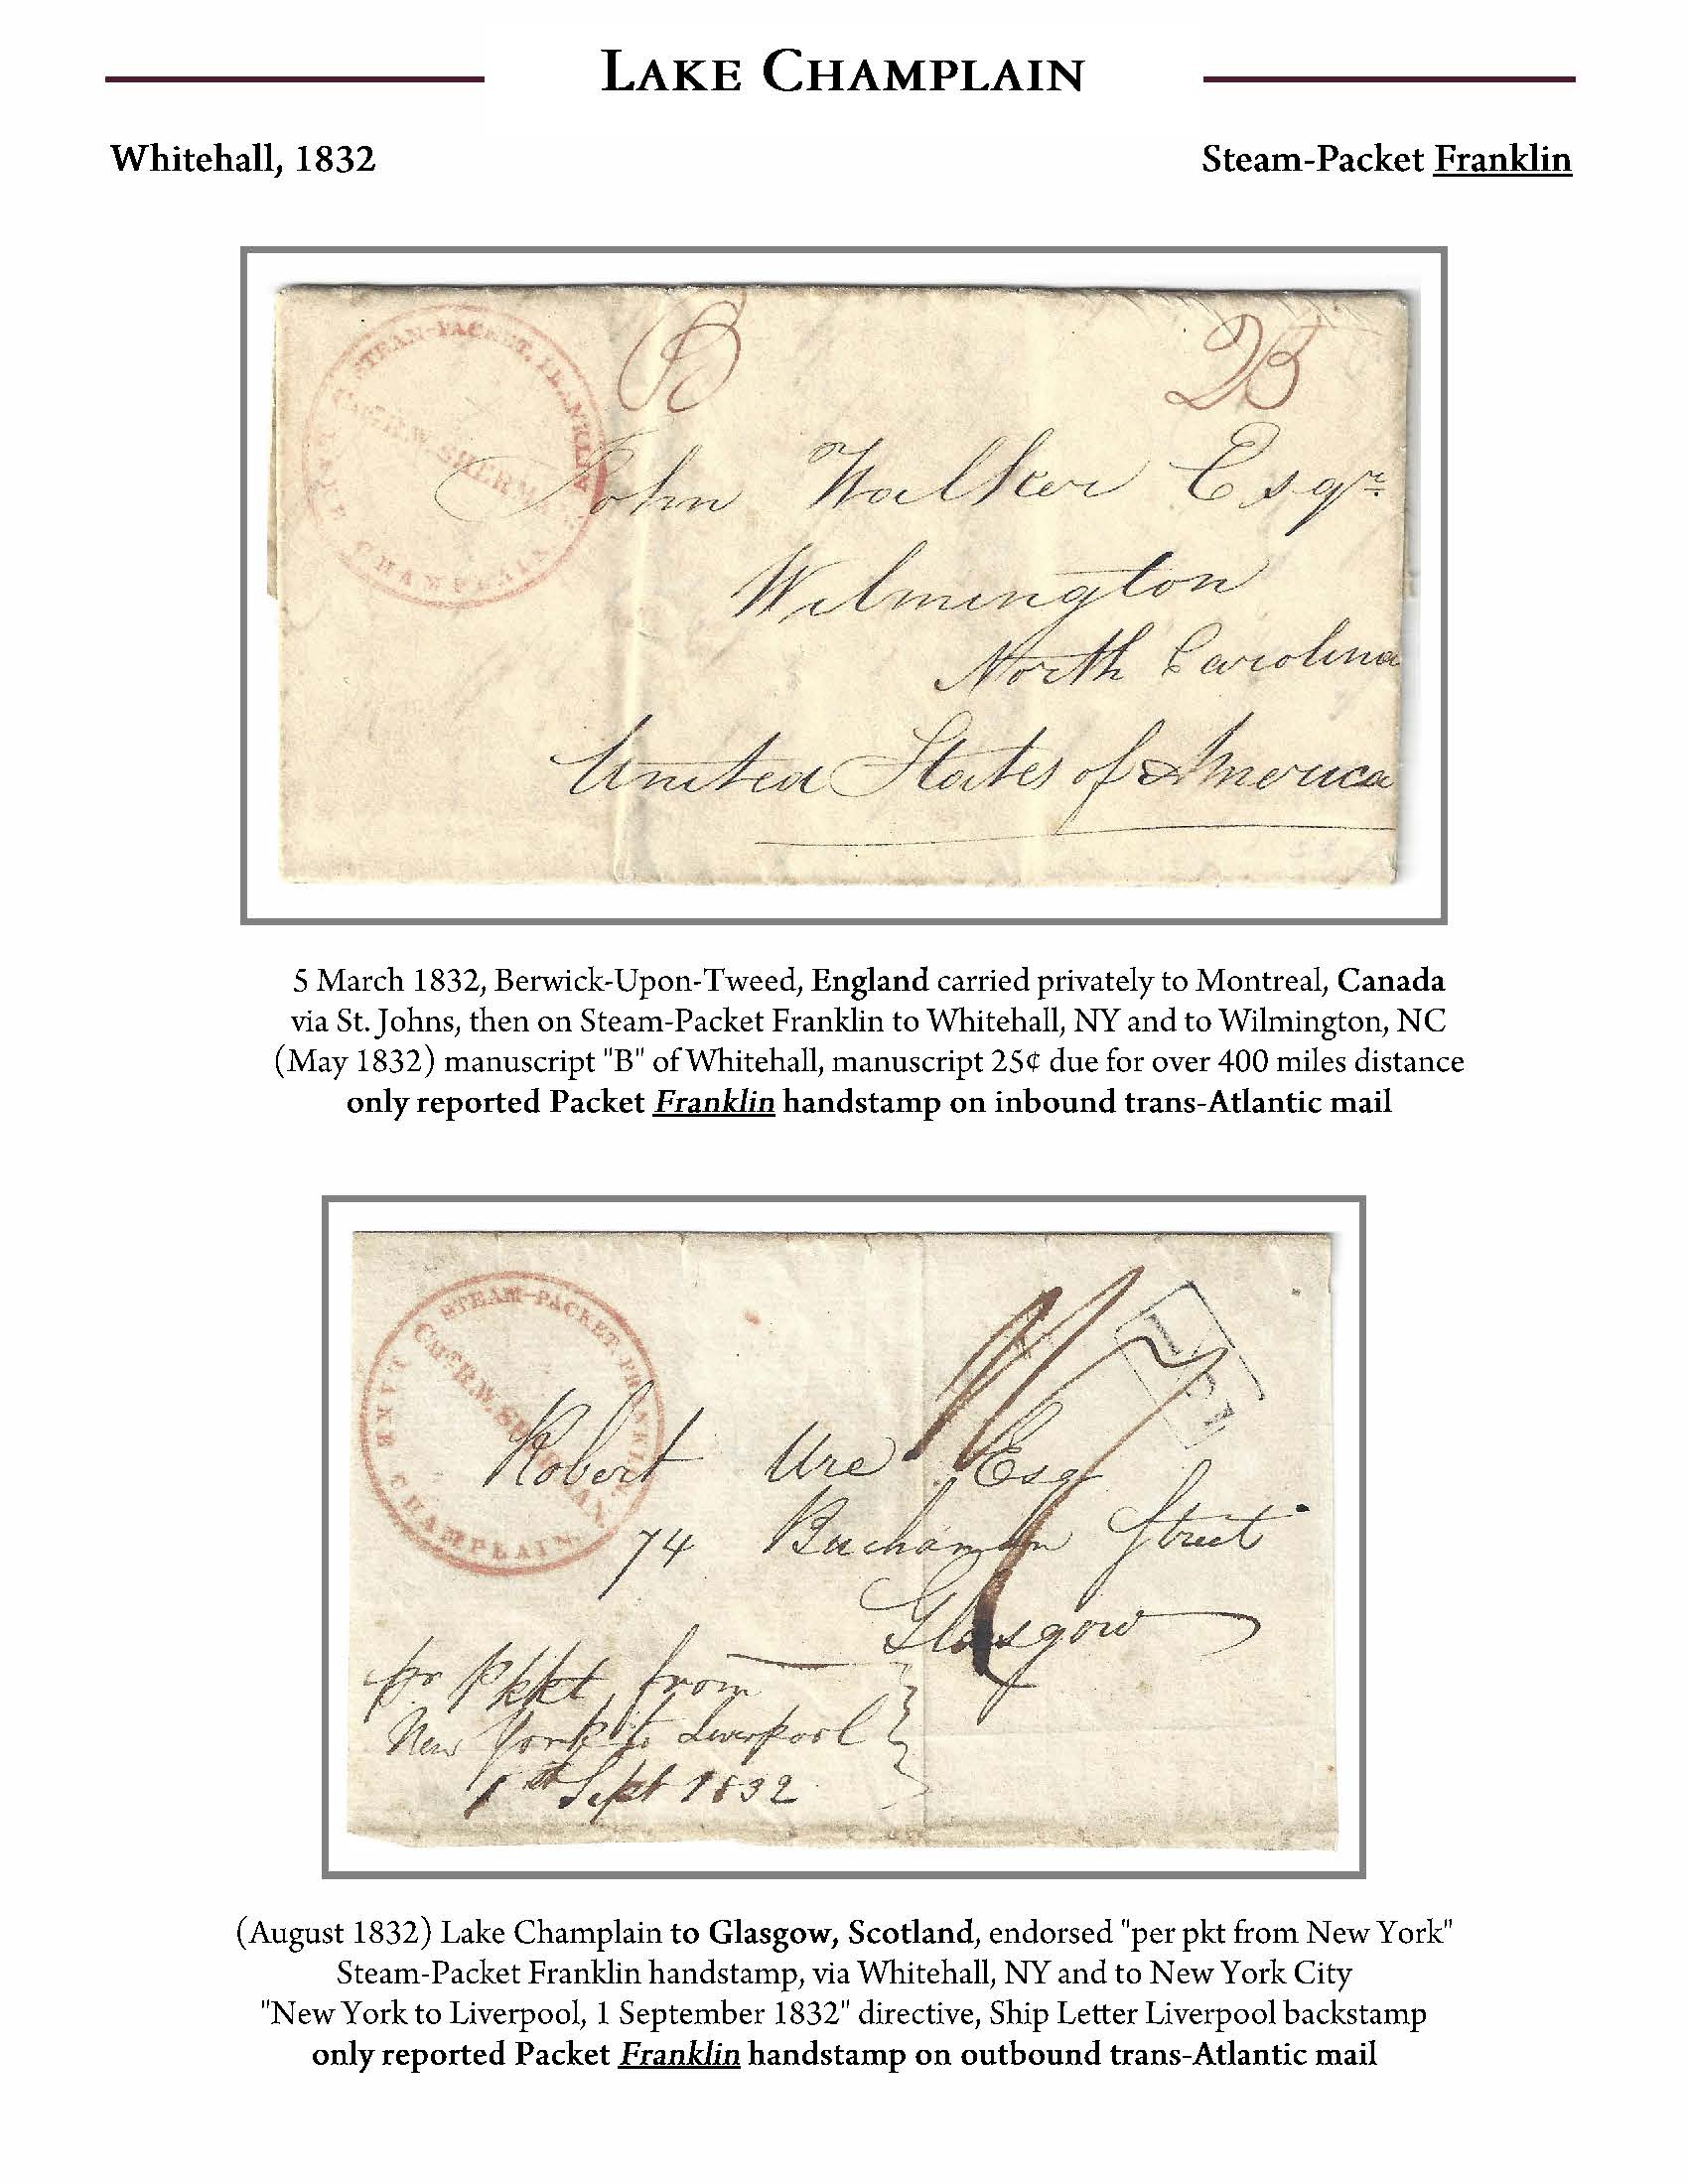 LAKE CHAMPLAIN
Whitehall, 1832
Steam-Packet Franklin
STEAM-PACKET, FRANKLIN
CAPT. R.W. SHERMAN
LAKE CHAMPLAIN
B
25
John Walker Esqr
Wilmington
North Carolina
United States of America
5 March 1832, Berwick-Upon-Tweed, England carried privately to Montreal, Canada
via St. Johns, then on Steam-Packet Franklin to Whitehall, NY and to Wilmington, NC
(May 1832) manuscript "B" of Whitehall, manuscript 25¢ due for over 400 miles distance
only reported Packet Franklin handstamp on inbound trans-Atlantic mail
STEAM-PACKET, FRANKLIN
CAPT. R.W. SHERMAN,
LAKE CHAMPLAIN.
Robert Ure Esq
74 Buchanan Street
Glasgow
pr Pkt from
New York to Liverpool
1st Sept 1832
(August 1832) Lake Champlain to Glasgow, Scotland, endorsed "per pkt from New York"
Steam-Packet Franklin handstamp, via Whitehall, NY and to New York City
"New York to Liverpool, 1 September 1832" directive, Ship Letter Liverpool backstamp
only reported Packet Franklin handstamp on outbound trans-Atlantic mail